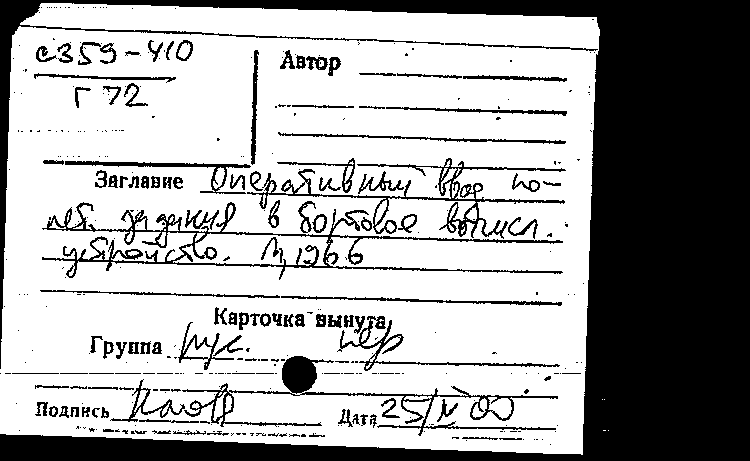 с359-410
Г 72
Автор
Заглавие Оперативный ввод по-
лет. задания в бортовое вычисл.
устройство. М, 1966
Карточка вынута
Группа рус. пер
Подпись
Дата 25/IV 00